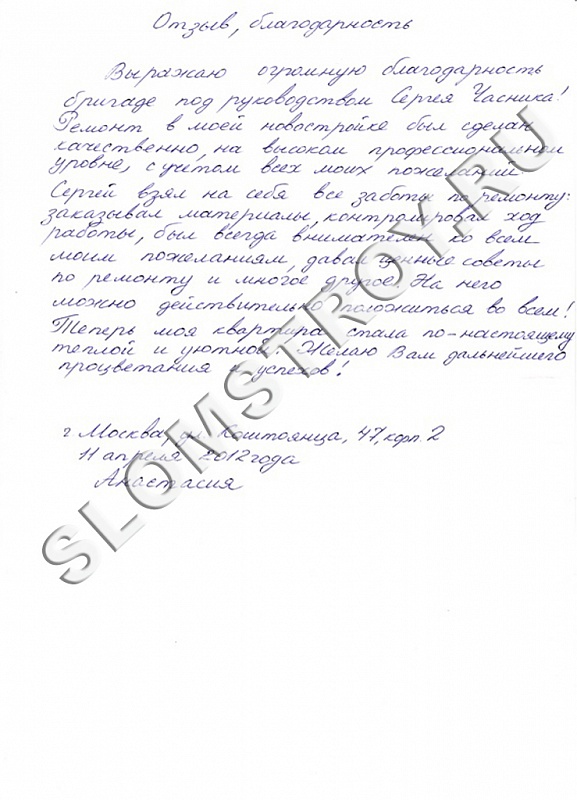 Отзыв, благодарность
Выражаю огромную благодарность
бригаде под руководством Сергея Часника!
Ремонт в моей новостройке был сделан
качественно, на высоком профессиональном
уровне, с учётом всех моих пожеланий
Сергей взял на себя все заботы по ремонту:
заказывал материалы, контролировал ход
работы, был всегда внимателен ко всем
моим пожеланиям, давал ценные советы
по ремонту и многое другое. На него
можно действительно положиться во всем!
Теперь моя квартира стала по-настоящему
теплой и уютной. Желаю Вам дальнейшего
процветания и успехов!
г Москва, ул. Коштоянца, 47, корп. 2
11 апреля 2012 года
Анастасия
SLOMSTROY.RU